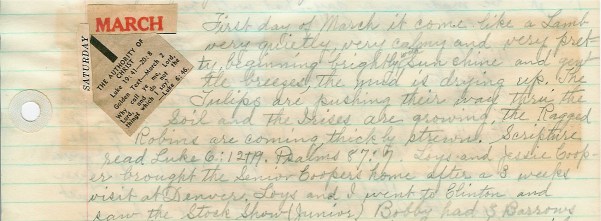 MARCH
1
SATURDAY
THE AUTHORITY OF
CHRIST
Luke 19:41—20:8
Golden Text—March 2
Why call ye me, Lord,
Lord, and do not the
things which I say?
—Luke 6:46.
First day of March it come like a Lamb
very quietly, very calmy and very pret
tie, beginning brightly sun shine and gent
tle breezes, the mud is drying up. The
Tulips are pushing their way thru the
Soil and the Irises are growing, the Ragged
Robins are coming thickly strewn. Scripture
read Luke 6:12-19. Psalms 87:7. Loys and Jessie Coop-
er brought the Senior Coopers home after a 3 weeks
visit at Denver. Loys and I went to Clinton and
saw the Stock Show (Junior) Bobby had 3 Barrows